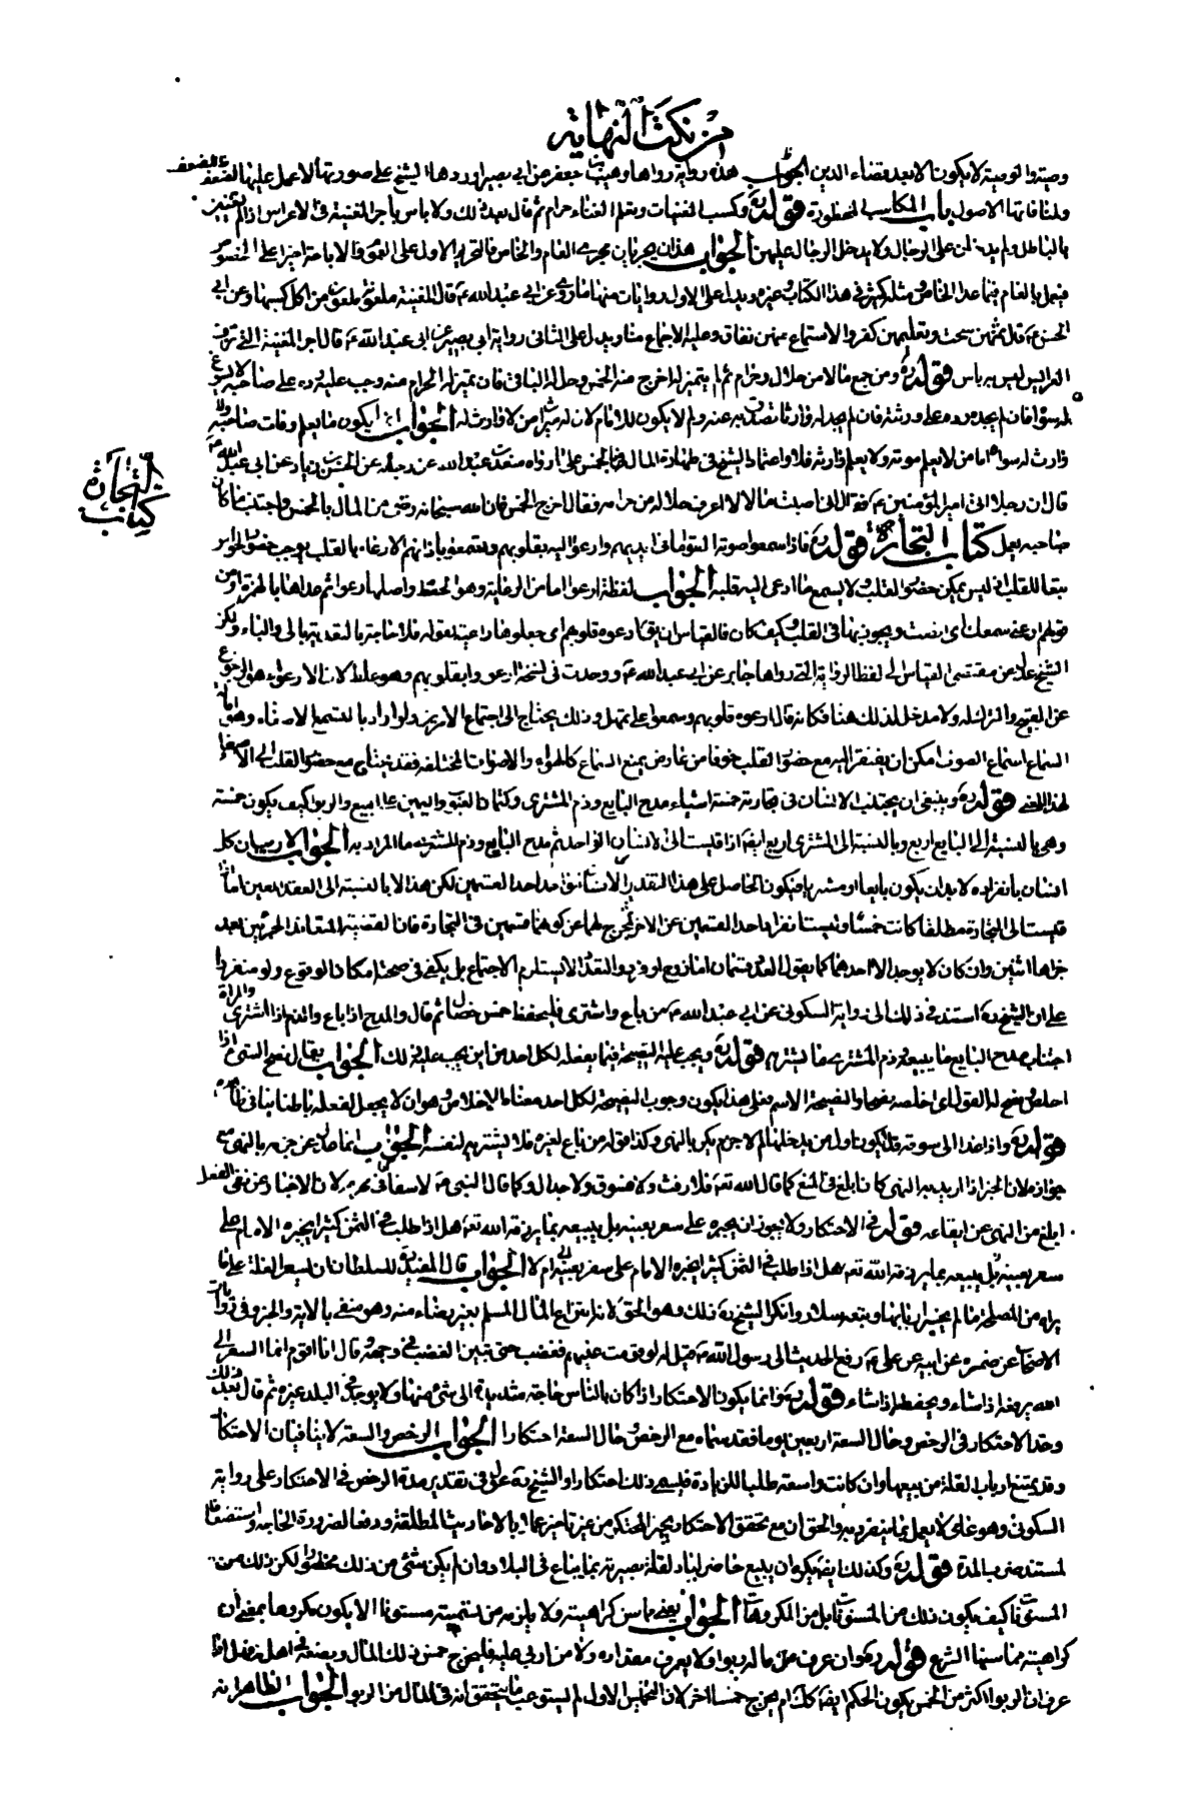 من نكت النهاية
وصيته والوصية لا يكون الا بعد قضاء الدين الجواب هذه رواية رواها وهيب بن جعفر عن ابي بصير اوردها الشيخ على صورتها لا عمل عليها لضعف
ولمنافاتها الاصول باب المكاسب المحظورة قوله ره وكسب المغنيات وتعلم الغناء حرام ثم قال بعد ذلك ولا باس باجر المغنية في الاعراس اذا لم يغنين
بالباطل ولم يدخلن على الرجال ولا يدخل الرجال عليهن الجواب هذان يجريان مجرى العام والخاص فالتحريم الاول على العموم والاباحة اخيرا على الخصوص
فيعمل بالعام فيما عدا الخاص ومثله كثير في هذا الكتاب وغيره ويدل على الاول روايات منها ما روى عن ابي عبد الله ع قال المغنية ملعونة ملعون من اكل كسبها وعن ابي
الحسن ع قال ثمنهن سحت وتعليمهن كفر والاستماع منهن نفاق وعليه الاجماع منا ويدل على الثاني رواية ابي بصير عن ابي عبد الله ع قال اجر المغنية التي تزف
العرايس ليس به باس قوله ره ومن جمع مالا من حلال وحرام ثم لم يتميز له اخرج منه الخمس وحل له الباقي فان تميز له الحرام منه وجب عليه رده على صاحبه لا يسوغ
له سواه فان لم يجده رده على ورثته فان لم يجد له وارثا تصدق به عنه ولم لا يكون للامام لان له ميراث من لا وارث له الجواب يكون ما يعلم وفات صاحبه ولا
وارث له سواه اما من لا يعلم موته ولا يعلم وارثه فلا واعتماد الشيخ في طهارة المال بالخمس على ما رواه عن الحسن بن زياد عن ابي عبد الله ع
قال ان رجلا اتى امير المؤمنين ع فقال اني اصبت مالا لا اعرف حلاله من حرامه فقال اخرج الخمس فان الله سبحانه رضي من المال بالخمس واجتنب ما كان
صاحبه يعمل كتاب التجارة قوله ره فاذا سمعوا صوته التوا ما في ايديهم وارعوا اليه بقلوبهم وسمعوه باذانهم الارعاء بالقلب يوجب حضور الحواس
تبعا للقلب اذ ليس يمكن حضور القلب ولا يسمع ما ادعى اليه قلبه الجواب لفظة ارعوا اما من الرعاية وهو الحفظ واصلها رعوا ثم عداها بالهمزة او من
قولهم ارعني سمعك اي انصت
الشيخ عدل عن مقتضى القياس الى لفظ الرواية التي رواها جابر عن ابي عبد الله ع ووجدت في نسخة ارعووا بقلوبهم وهو غلط لان الارعواء هو الرجوع
عن القبيح ولا مدخل لذلك هنا
السماع استماع الصوت امكن ان يفتقر اليه مع حضور القلب خوفا من عارض يمنع السماع كالهواء والاصوات المختلفة فقد يحتاج مع حضور القلب الى الاصغاء
لهذا المعنى قوله ره وينبغي ان يجتنب الانسان في تجارته خمسة اشياء مدح البايع وذم المشتري وكتمان العيوب واليمين على البيع والربوا كيف يكون خمسة
وهي بالنسبة الى البايع اربع وبالنسبة الى المشتري اربع ايضا اذا قيست الى الانسان الواحد ثم مدح البايع وذم المشتري ما المراد به الجواب لا ريب ان كل
انسان بانفراده لا بد ان يكون بايعا او مشتريا فيكون الحاصل على هذا التقدير احد القسمين لكن هذا الا بالنسبة الى العقد المعين اما اذا
قيست الى التجارة مطلقا كانت خمسا وليست انفراد احد القسمين عن الاخر مخرج لهما عن كونهما قسمين في التجارة
جزاها اثنين وان كان لا يوجد الا احدهما كما يقول العدد قسمان اما زوج او فرد والتعدد لا يستلزم الاجتماع بل يكفي في صحته امكان الوقوع ولو منفردا
على ان الشيخ ره استند في ذلك الى رواية السكوني عن ابي عبد الله ع من باع واشترى فليحفظ خمس خصال ثم قال والمدح اذا باع والذم اذا اشترى والمراد
اجتناب مدح البايع ما يبيعه وذم المشتري ما يشتريه قوله ره ويجب عليه النصيحة فيما يفعله لكل احد من اين يجب عليه ذلك الجواب يقال نصح الشيء اذا
اخلص ونصح له القول اي اخلصه نصحا والنصيحة الاسم فعلى هذا يكون وجوب النصيحة لكل احد معناه الاخلاص وهو ان لا يجعل لفعله باطنا ينافي ظاهره
قوله ره واذا غدا الى سوقه فلا يكون اول من يدخلها لم لا جزم يكن بالنهي وكذا قوله من باع لغيره فلا يشتريه لنفسه الجواب انما صار عن جزمه بالنهي مع
جوازه لان الخبر اذا اريد به النهي كان ابلغ في المنع كما قال الله تعه فلا رفث ولا فسوق ولا جدال وكما قال النبي ع لان الاخبار عن نفي الفعل
ابلغ من النهي عن ايقاعه قوله في الاحتكار ولا يجوز ان يجبره على سعر بعينه بل يبيعه بما يرزقه الله تعه هل اذا طلب في الثمن كثيرا يجبره الامام على
سعر بعينه بل يبيعه بما يرزقه الله تعه هل اذا طلب في الثمن كثيرا يجبره الامام على سعر بعينه ام لا الجواب قال المفيد ره للسلطان ان يسعر الغلة على ما
يراه من المصلحة ما لم يخسر اربابها وتبعه سلار وانكر الشيخ ره ذلك وهو الحق لانه انتزاع المال المسلم بغير رضاء منه وهو منفي بالاية والخبر وفي روايات
الاصحاب عن ضمرة عن ابيه عن علي ع رفع الحديث الى رسول الله ص قيل له لو قومت عليهم فغضب حتى تبين الغضب في وجهه وقال انا اقوم انما السعر الى
الله يرفعه اذا شاء ويحفظه اذا شاء قوله ره وانما يكون الاحتكار اذا كان بالناس حاجة شديدة الى شيء منها ولا يوجد في البلد غيره ثم قال بعد ذلك
وحد الاحتكار في الرخص وحال السعة اربعين يوما فقد سماه مع الرخص وحال السعة احتكارا الجواب الرخص والسعة لا ينافيان الاحتكار
وقد يمتنع ارباب الغلة من بيعها وان كانت واسعة طلبا للزيادة فيسمى ذلك احتكارا والشيخ ره عول في تقدير مدة الرخص في الاحتكار على رواية
السكوني وهو عامي لا يعمل بما ينفرد به والحق ان مع تحقق الاحتكار يجبر المحتكر من غير تاخير عملا بالاحاديث المطلقة ودفعا لضرورة الحاجة واستضعافا
لمستند ضرب المدة قوله ره وكذلك ايضا يكره ان يبيع حاضر لباد لقلة بصيرته بما يباع في البلاد وان لم يكن شيء من ذلك محظورا لكن ذلك من
المسنونات كيف يكون ذلك من المسنونات بل من المكروهات الجواب يعني ما سن كراهيته ولا يلزم من تسميته مسنونا الا يكون مكروها بمعنى ان
كراهيته مما سنها الشرع قوله ره وان عرف ان ماله ربوا ولا يعرف مقداره ولا من اربى عليه فليخرج خمس ذلك المال ويضعه في اهله فضل اذا
عرف ان الربوا اكثر من الخمس يكون الحكم ايضا كذلك ام يخرج خمسا اخر لان الخمس الاول لم يستوعب ما يتحقق انه في المال من الربوا الجواب الظاهر انه
كتاب التجارة